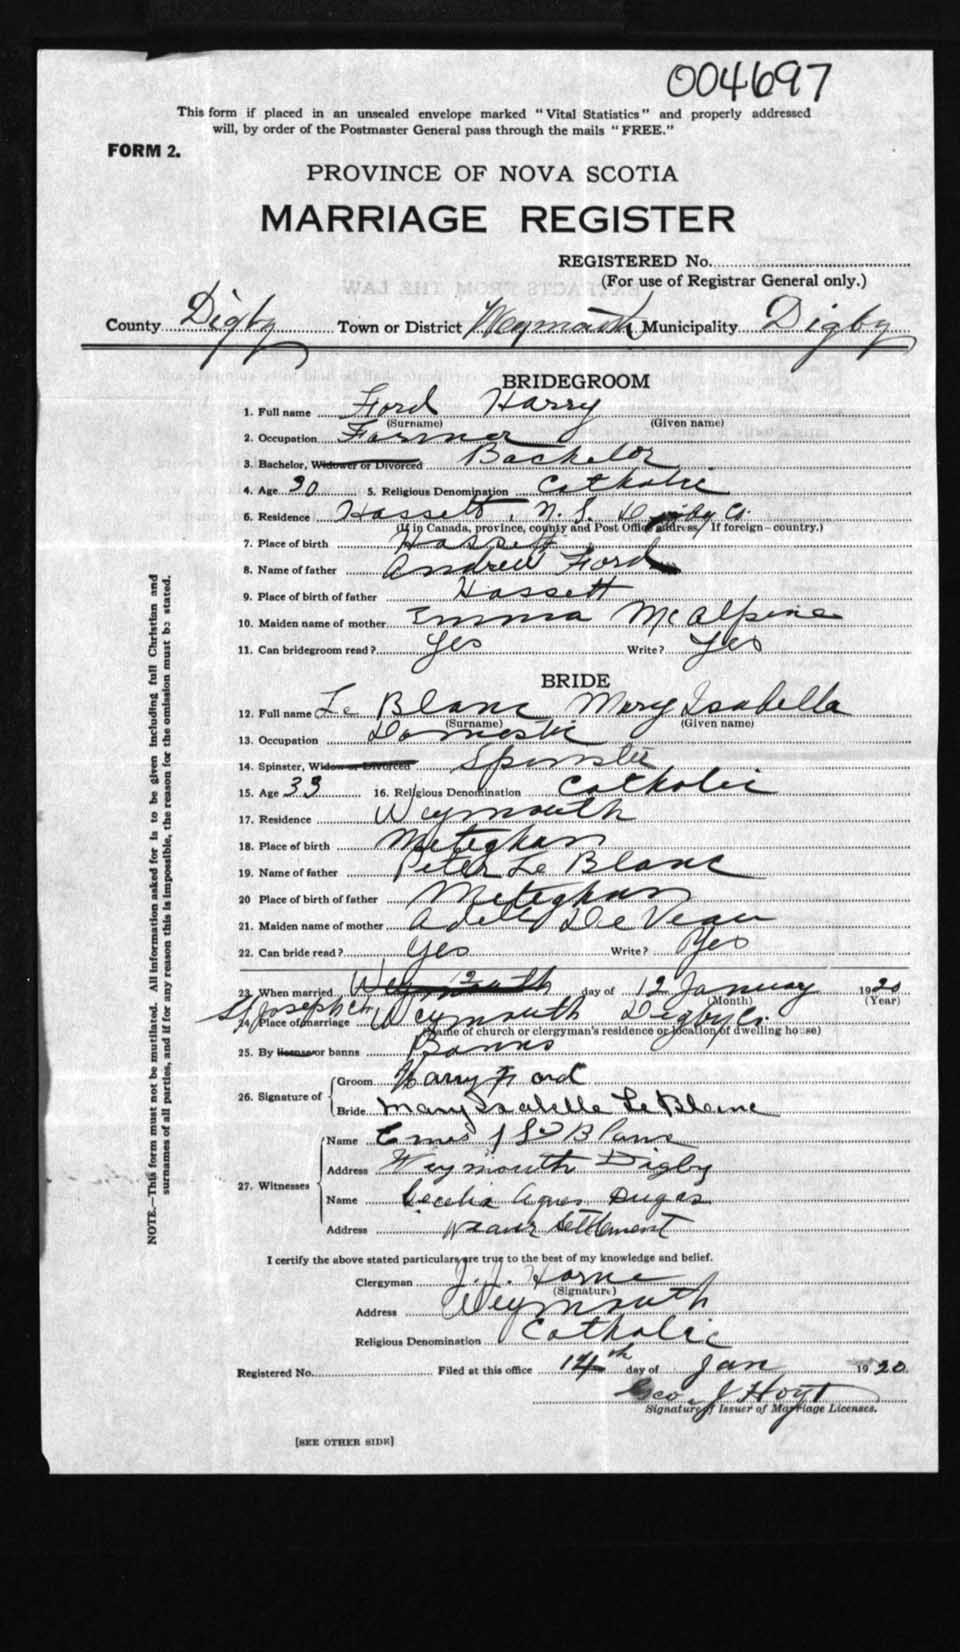 004697
This form if placed in an unsealed envelope marked "Vital Statistics" and properly addressed
will, by order of the Postmaster General pass through the mails "FREE."
FORM 2.
PROVINCE OF NOVA SCOTIA
MARRIAGE REGISTER
REGISTERED No.
(For use of Registrar General only.)
County Digby Town or District Weymouth Municipality Digby
BRIDEGROOM
1. Full name Ford Harry
(Surname) (Given name)
2. Occupation Farmer
3. Bachelor, Widower or Divorced Bachelor
4. Age 30 5. Religious Denomination Catholic
6. Residence Hassett, N. S. Digby Co.
(If in Canada, province, county and Post Office address, If foreign—country.)
7. Place of birth Hassett
8. Name of father Andrew Ford
9. Place of birth of father Hassett
10. Maiden name of mother Emma McAlpine
11. Can bridegroom read? Yes Write? Yes
BRIDE
12. Full name Le Blanc Mary Isabella
(Surname) (Given name)
13. Occupation Domestic
14. Spinster, Widow or Divorced Spinster
15. Age 33 16. Religious Denomination Catholic
17. Residence Weymouth
18. Place of birth Meteghan
19. Name of father Peter Le Blanc
20 Place of birth of father Meteghan
21. Maiden name of mother Adelle De Veau
22. Can bride read? Yes Write? Yes
23. When married Weymouth 12 day of 12 January 1920
(Month) (Year)
24. Place of marriage St Joseph Ch Weymouth Digby Co.
(Name of church or clergyman's residence or location of dwelling house)
25. By license or banns Banns
26. Signature of
Groom Harry Ford
Bride Mary Isabelle Le Blanc
27. Witnesses
Name J Le Blanc
Address Weymouth Digby
Name Cecelia Agnes Dugas
Address Weaver Settlement
I certify the above stated particulars are true to the best of my knowledge and belief.
Clergyman J. J. Horne
(Signature)
Address Weymouth
Religious Denomination Catholic
Registered No. Filed at this office 14th day of Jan 1920
Geo J Hoyt
Signature of Issuer of Marriage Licenses.
[SEE OTHER SIDE]
NOTE.—This form must not be mutilated. All information asked for is to be given including full Christian and
surnames of all parties, and if for any reason this is impossible, the reason for the omission must be stated.